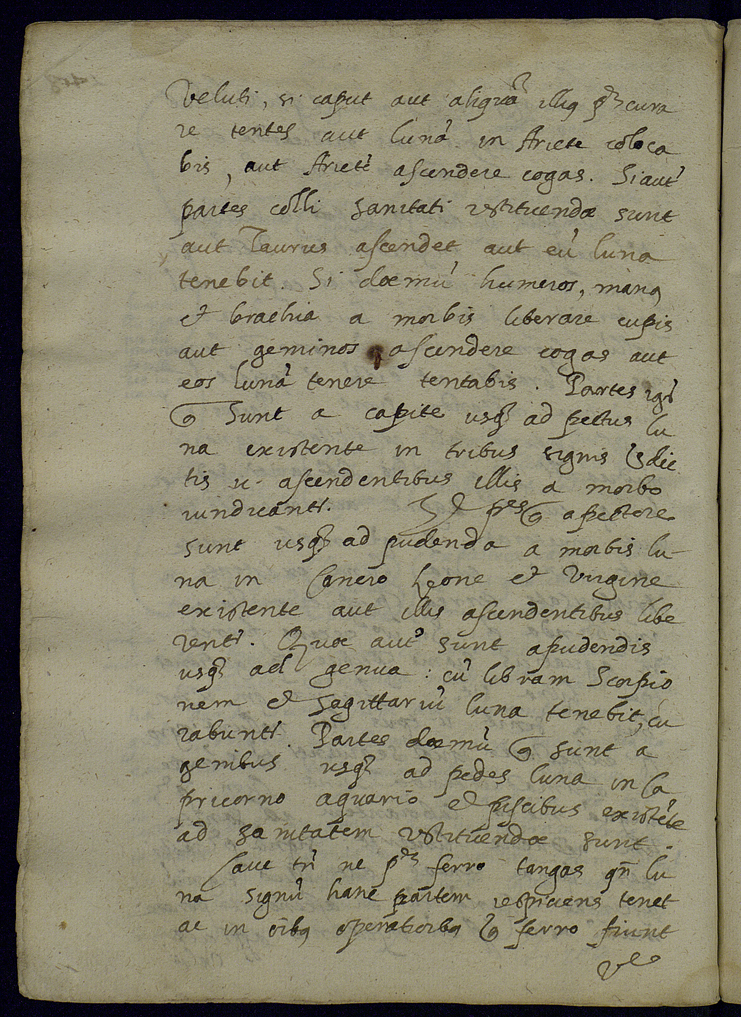 veluti, si caput aut aliquã illiq p^s cura
re tentes aut lunã in Ariete coloca
bis, aut Arietẽ ascendere cogas. Si aut̃
partes colli sanitati restituendæ sunt
aut Taurus ascendet aut eũ luna
tenebit. Si dæmũ humeros, manq
et brachia a morbis liberare cupis
aut geminos ascendere cogas aut
eos lunã tenere tentabis. Partes igr̃
q̃ sunt a capite usq̃ ad pectus lu
na existente in tribus signis p̃dic
tis u- ascendentibus illis a morbo
uindicantr̃. p^es q̃ a pectore
sunt usq̃ ad pudenda a morbis lu-
na in Cancro Leone et Virgine
existente aut illis ascendentibus libe
rentr̃. Quæ aut̃ sunt a pudendis
usq̃ ad genua: cũ libram Scorpio
nem et Sagittariũ luna tenebit, cu
rabuntr̃. Partes dæmũ q̃ sunt a
genibus usq̃ ad pedes luna in Ca
pricorno aquario et piscibus existẽte
ad sanitatem restituendæ sunt.
Caue tñ ne p^es ferro tangas qñ lu
na signũ hanc partem respiciens tenet
ac in oĩbq operatioĩbq q̃ ferro fiunt